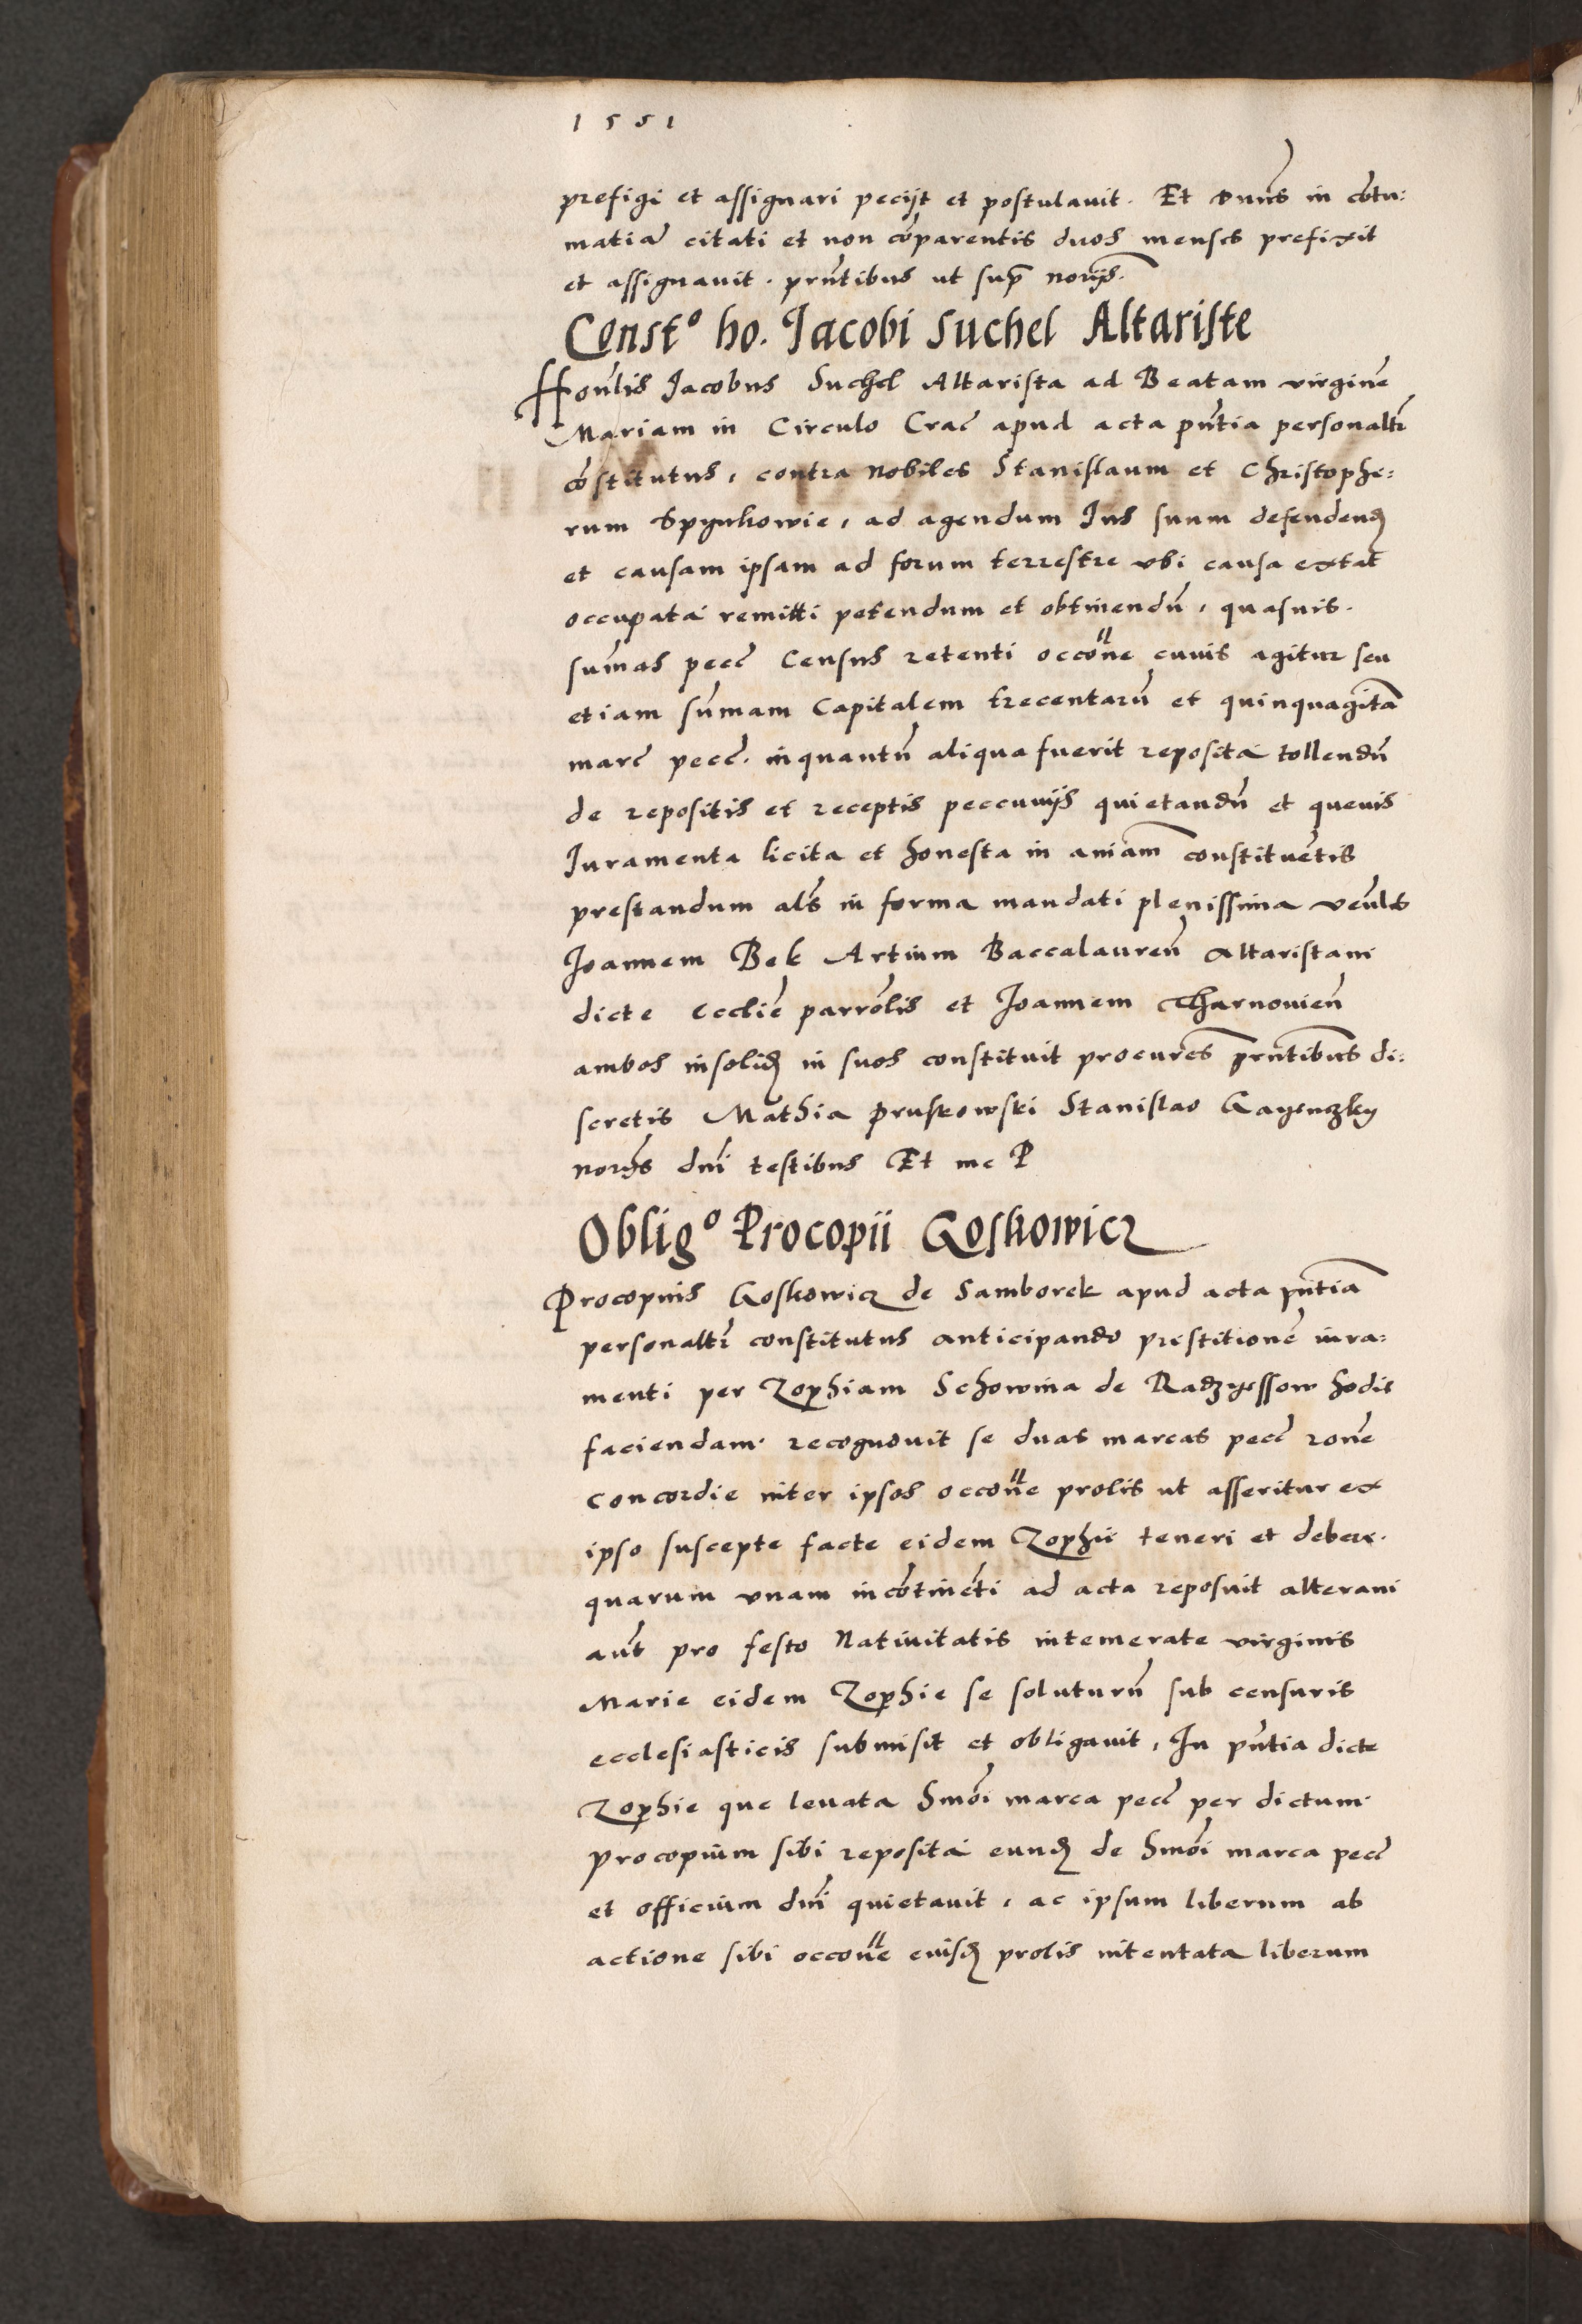 1551
prefigi et assignari pecijt et postulauit. Et Dnus in cōtu:
matiā citati et non cōparentis duos menses prefixit
et assignauit. prñtibus ut supra norijs.
Const° ho. Jacobi Suchel Altariste
Honlis Jacobus Suchel Altarista ad Beatam virginē
Mariam in Circulo Crac̃ apud acta pñtia personaltr̃
cōstitutus, contra nobiles Stanislaum et Christophe:
rum Spynkowie, ad agendum Jus suum defendend
et causam ipsam ad forum terrestre vbi causa extat
occupata remitti petendum et obtinendū, quasuis
sum̃as pecc̃ census retenti occōne cuius agitur seu
etiam sum̃am capitalem trecentarū et quinquaginta
marc̃ pecc̃. inquantū aliqua fuerit reposita tollendū
de repositis et receptis peccunijs quietandū et queuis
Juramenta licita et honesta in aniam constituētis
prestandum als̃ in forma mandati plenissima veñlēs
Joannem Bek Artium Baccalaureū Altaristam
dicte Ecclie parrōlis et Joannem Tharnouień
ambos insolid in suos constituit procures prñtibus di:
scretis Mathia Pruskowski Stanislao Gayenczky
norijs dni testibus Et me P
Oblig° Procopii Goskowicz
Procopius Goskowicz de Samborek apud acta pñtia
personaltr̃ constitutus anticipando prestitionē iura:
menti per Zophiam Schowina de Radzyssow hodie
faciendam. recognouit se duas marcas pecc̃ rōne
concordie inter ipsos occōne prolis ut asseritur ex
ipso suscepte facte eidem Zophie teneri et debere.
quarum vnam incōtinēti ad acta reposuit alteram
aūt pro festo Natiuitatis intemerate virginis
Marie eidem Zophie se soluturū sub censuris
ecclesiasticis submisit et obligauit, In pñtia dicte
Zophie que leuata hmōi marca pecc̃ per dictum
Procopium sibi reposita eund de hmōi marca pecc̃
et officium dni quietauit, ac ipsum liberum ab
actione sibi occōne eiusd prolis intentata liberum